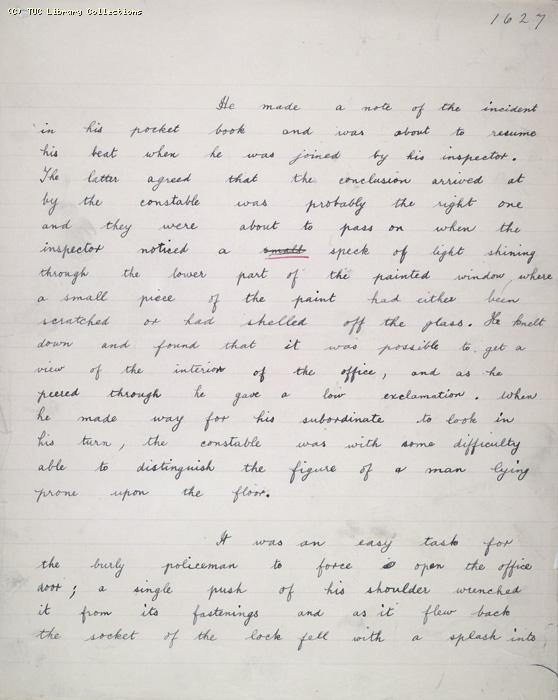 (C) TUC Library Collections
1627
He made a note of the incident
in his pocket book and was about to resume
his beat when he was joined by his inspector.
The latter agreed that the conclusion arrived at
by the constable was probably the right one
and they were about to pass on when the
inspector noticed a small speck of light shining
through the lower part of the painted window, where
a small piece of the paint had either been
scratched or had shelled off the glass. He knelt
down and found that it was possible to get a
view of the interior of the office, and as he
peered through he gave a low exclamation. When
he made way for his subordinate to look in
his turn, the constable was with some difficulty
able to distinguish the figure of a man lying
prone upon the floor.
It was an easy task for
the burly policeman to force open the office
door; a single push of his shoulder wrenched
it from its fastenings and as it flew back
the socket of the lock fell with a splash into